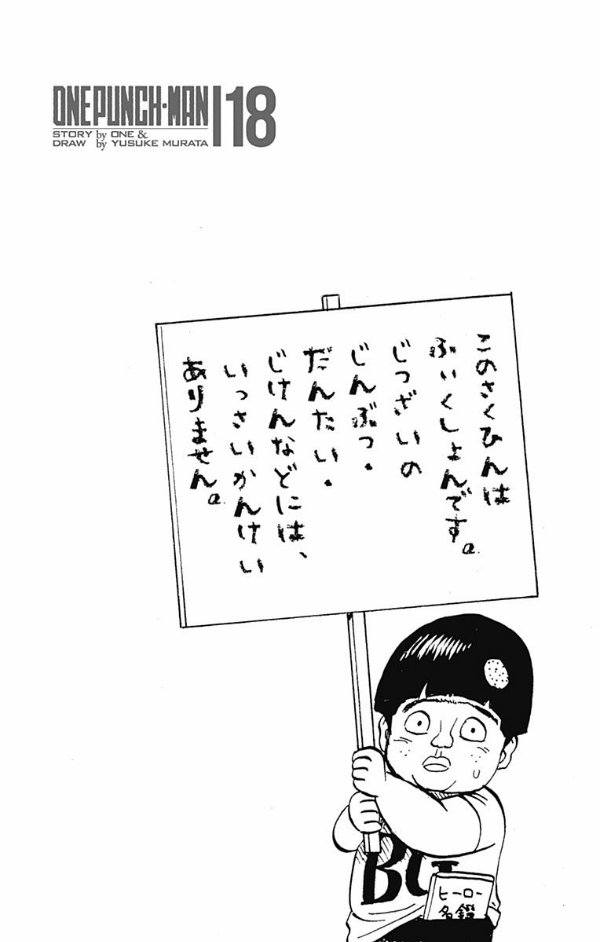 ONE PUNCH-MAN 18
STORY by ONE &
DRAW by YUSUKE MURATA
このさくひんは
ふぃくしょんです。
じつざいの
じんぶつ・
だんたい・
じけんなどには、
いっさいかんけい
ありません。
ヒーロー
名鑑